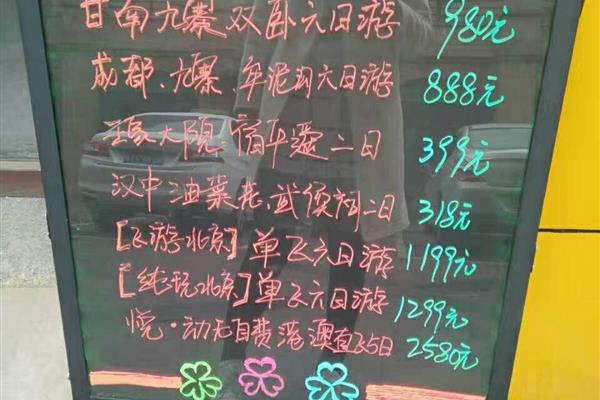 甘南九寨双卧六日游 980元
成都.九寨.牟泥沟六日游 888元
王家大院 宿平遥二日 399元
汉中油菜花.武侯祠二日 318元
[飞游北京]单飞六日游 1199元
[纯玩北京]单飞六日游 1299元
悦·动无自费港澳直飞5日 2580元